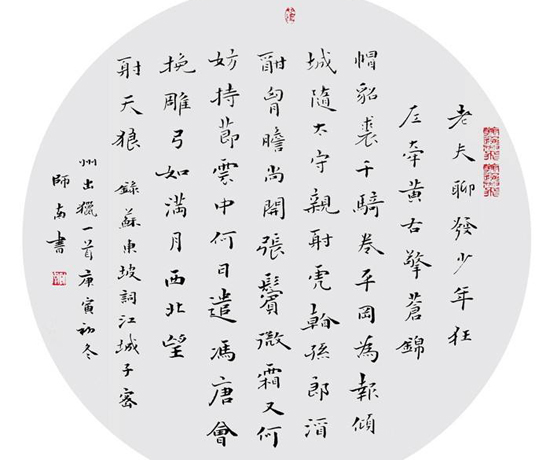 老夫聊發少年狂
左牽黃右擎蒼錦
帽貂裘千騎卷平岡為報傾
城隨太守親射虎看孫郎酒
酣胷膽尚開張鬢微霜又何
妨持節雲中何日遣馮唐會
挽雕弓如滿月西北望
射天狼 錄蘇東坡詞江城子密
州出獵一首庚寅初冬
師南書